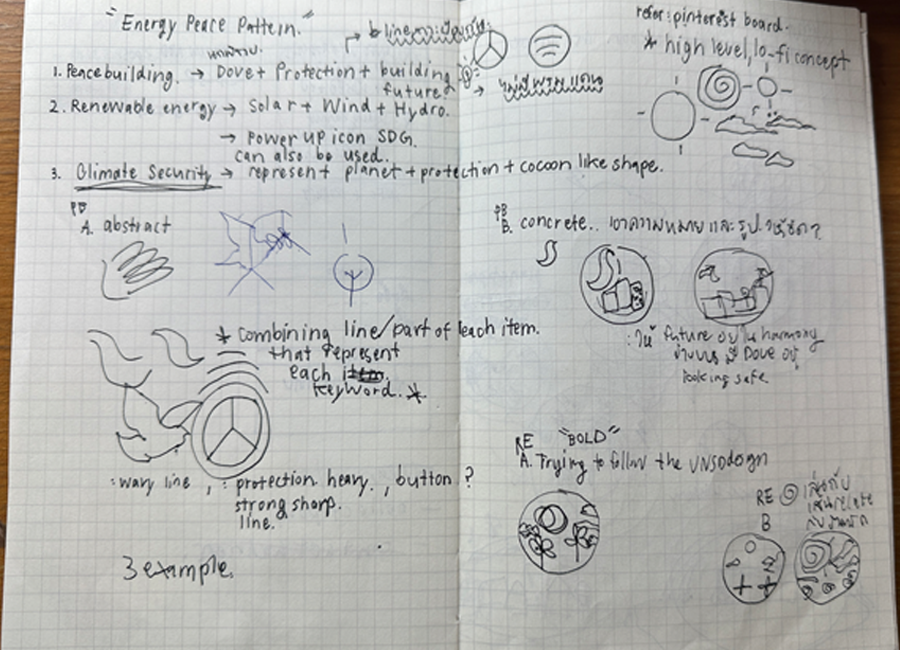 "Energy Peace Pattern."
1. Peacebuilding. → Dove + Protection + building
future
2. Renewable energy → Solar + Wind + Hydro.
→ Power up icon SDG.
can also be used.
3. Climate Security → represent planet + protection + cocoon like shape.
PB
A. abstract
* combining line/part of each item.
that represent
each item.
keyword. *
: wavy line , : protection heavy. , button ?
strong sharp.
line.
3 example.
refer: pinterest board.
* high level, lo-fi concept
→ ไม่มีพรมแดน
PB
B. concrete.. เอาความหมาย และ รูป ให้ชัด ?
: ให้ future อยู่ใน harmony
ข้างบน มี Dove อยู่
looking safe
RE "BOLD"
A. Trying to follow the UNSDG design
RE
B